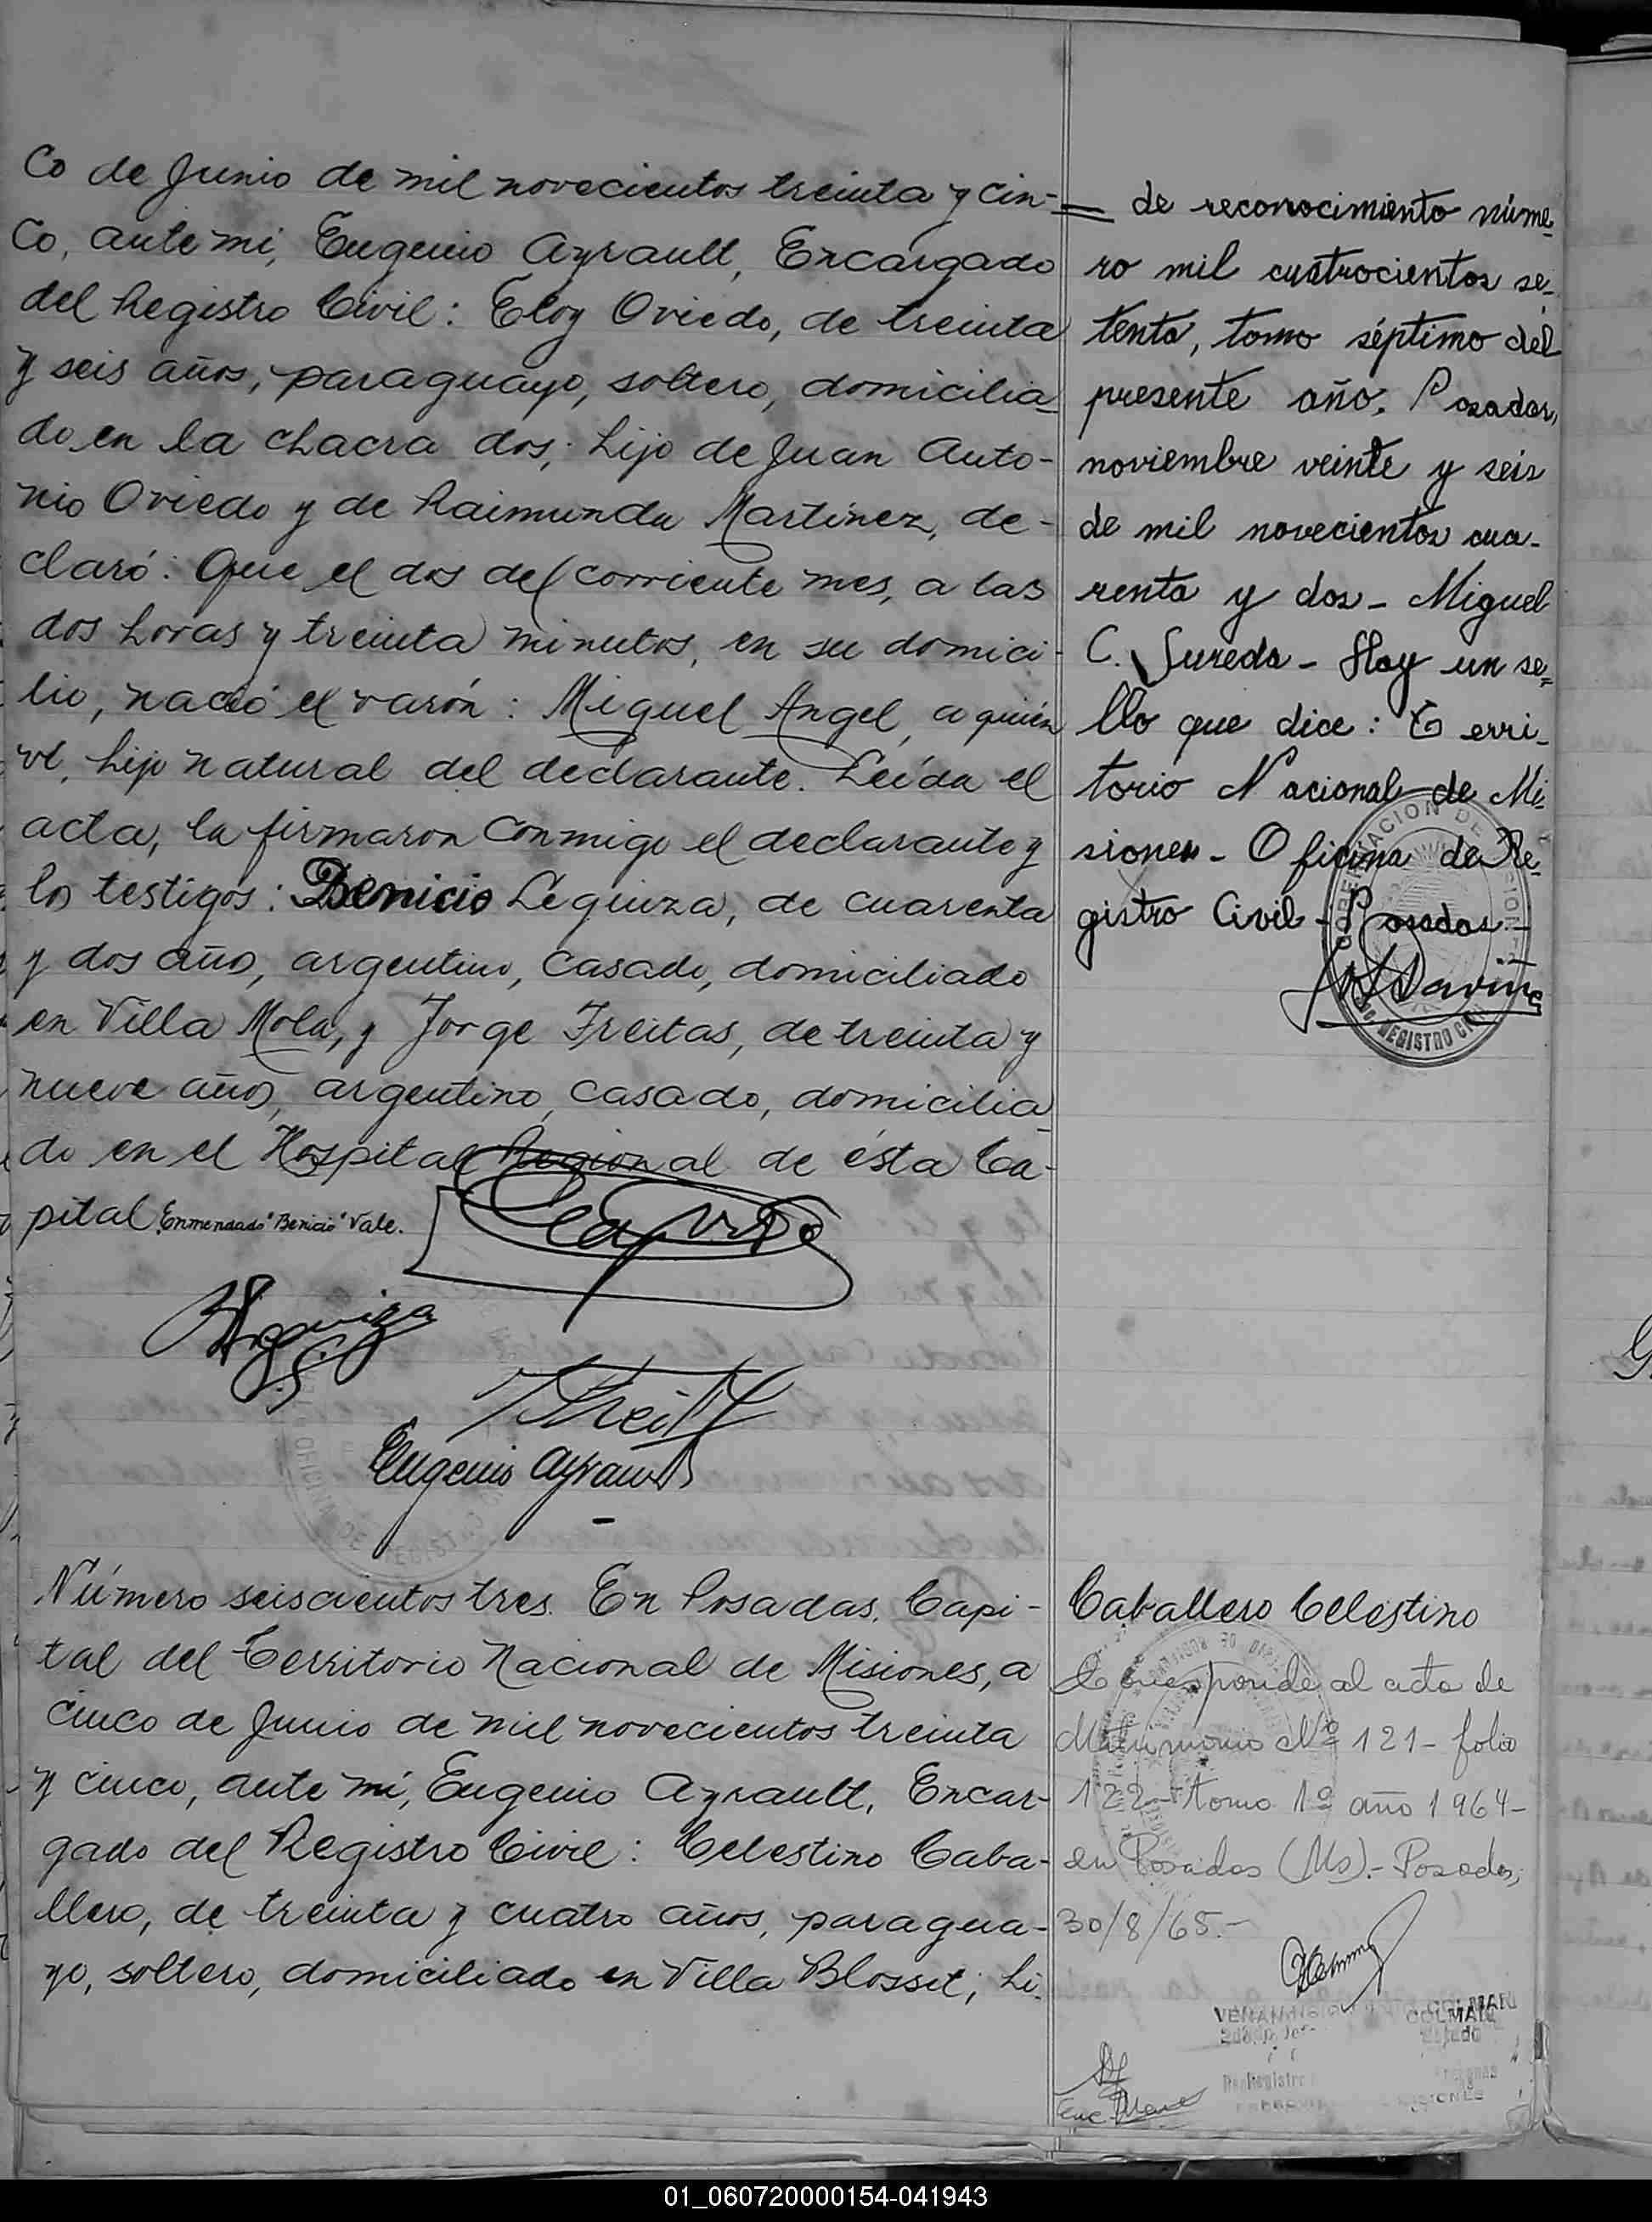 co de Junio de mil novecientos treinta y cin-
co, ante mi, Eugenio Ayrault, Encargado
del Registro Civil: Eloy Oviedo, de treinta
y seis años, paraguayo, soltero, domicilia-
do en la chacra dos; hijo de Juan Anto-
nio Oviedo y de Raimunda Martinez, de-
claró: Que el dos del corriente mes, a las
dos horas y treinta minutos, en su domici-
lio, nació el varón: Miguel Angel, a quién
ví, hijo natural del declarante. Leída el
acta, la firmaron conmigo el declarante y
los testigos: Benicio Leguiza, de cuarenta
y dos años, argentino, casado, domiciliado
en Villa Mola, y Jorge Freitas, de treinta y
nueve años, argentino, casado, domicilia-
do en el Hospital Regional de ésta Ca-
pital. Enmendado "Benicio" Vale.
Eugenio Ayrault
de reconocimiento núme-
ro mil cuatrocientos se-
tenta, tomo séptimo del
presente año. Posadas,
noviembre veinte y seis
de mil novecientos cua-
renta y dos - Miguel
C. Sureda - Hay un se-
llo que dice: Terri-
torio Nacional de Mi-
siones - Oficina de Re-
gistro Civil - Posadas -
Número seiscientos tres. En Posadas, Capi-
tal del Territorio Nacional de Misiones, a
cinco de Junio de mil novecientos treinta
y cinco, ante mí, Eugenio Ayrault, Encar-
gado del Registro Civil: Celestino Caba-
llero, de treinta y cuatro años, paragua-
yo, soltero, domiciliado en Villa Blosset; hi-
Caballero Celestino
Corresponde al acta de
Matrimonio Nº 121 - folio
122 - tomo 1º año 1964 -
en Posadas (Ms).- Posadas,
30/8/65.-
COLMAN
01_060720000154-041943